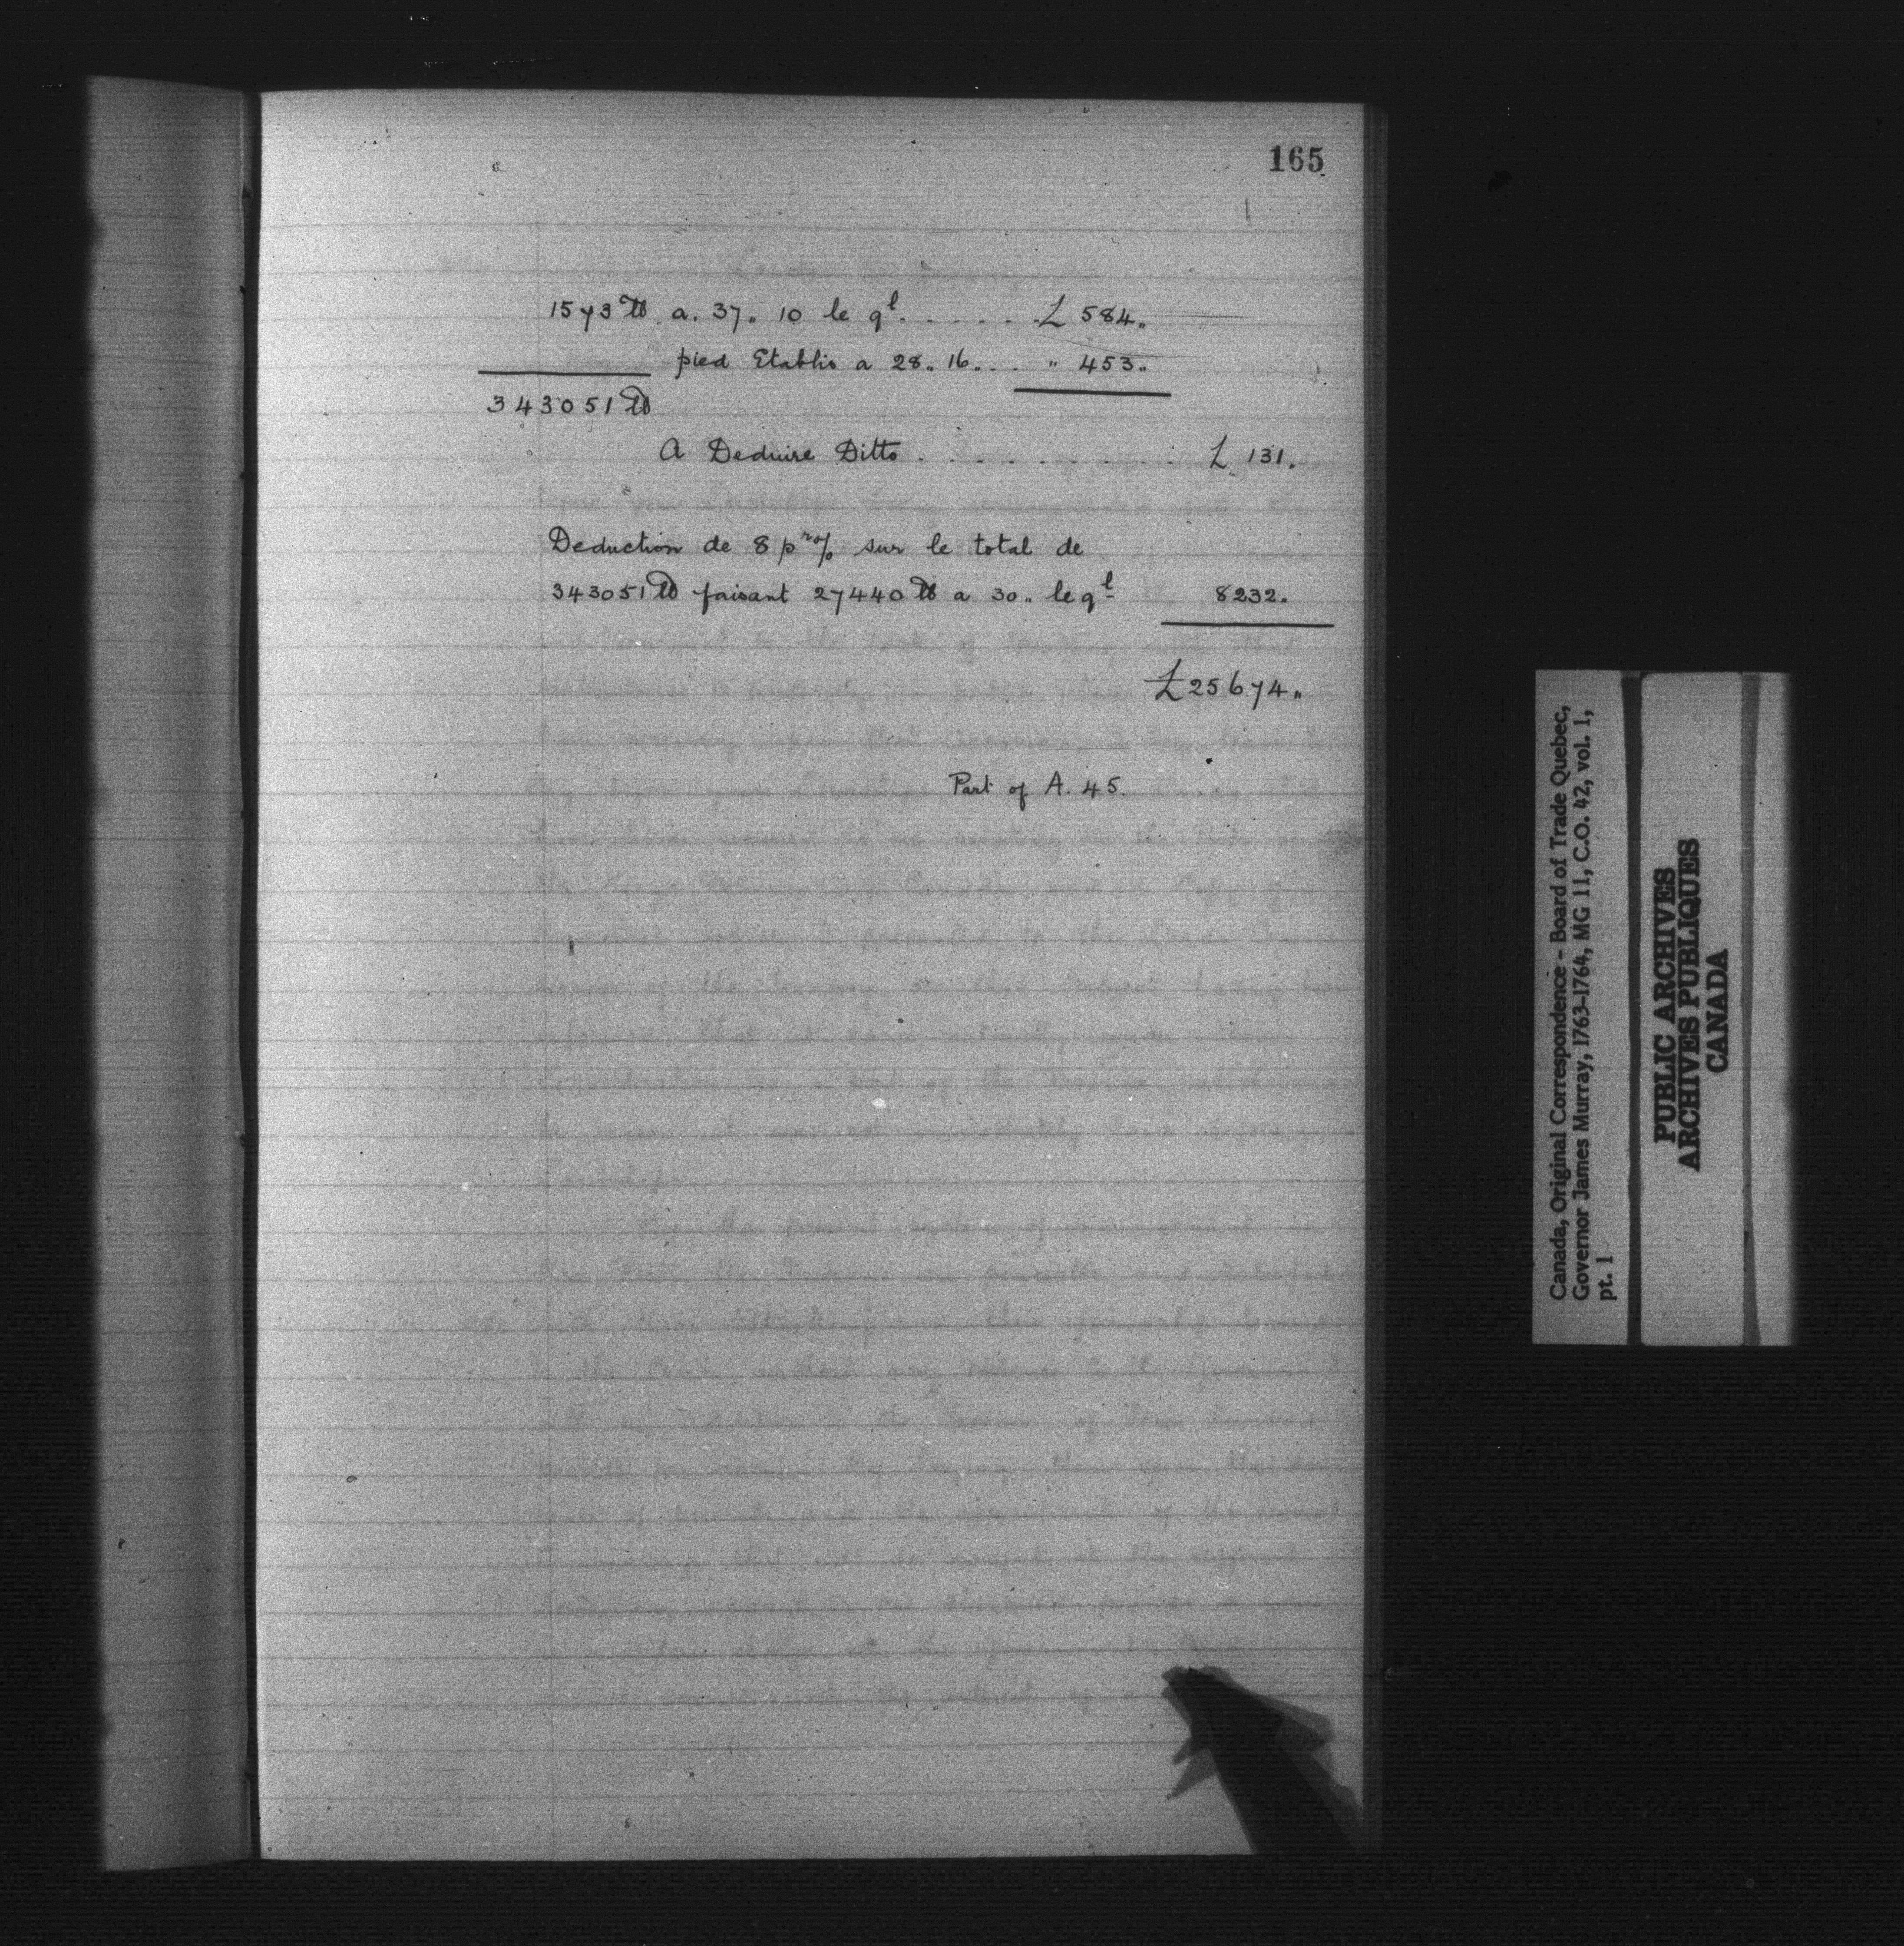 165
1573 ℔ a. 37. 10 le ql. . . . . . £ 584.
pied Etablis a 28. 16. . . " 453.
343051 ℔
A Deduire Ditto . . . . . . . . . . £ 131.
Deduction de 8 pro% sur le total de
343051 ℔ faisant 27440 ℔ a 30. le ql 8232.
£25674.
Part of A. 45.
Canada, Original Correspondence - Board of Trade Quebec,
Governor James Murray, 1763-1764, MG 11, C.O. 42, vol. 1,
pt. 1
PUBLIC ARCHIVES
ARCHIVES PUBLIQUES
CANADA